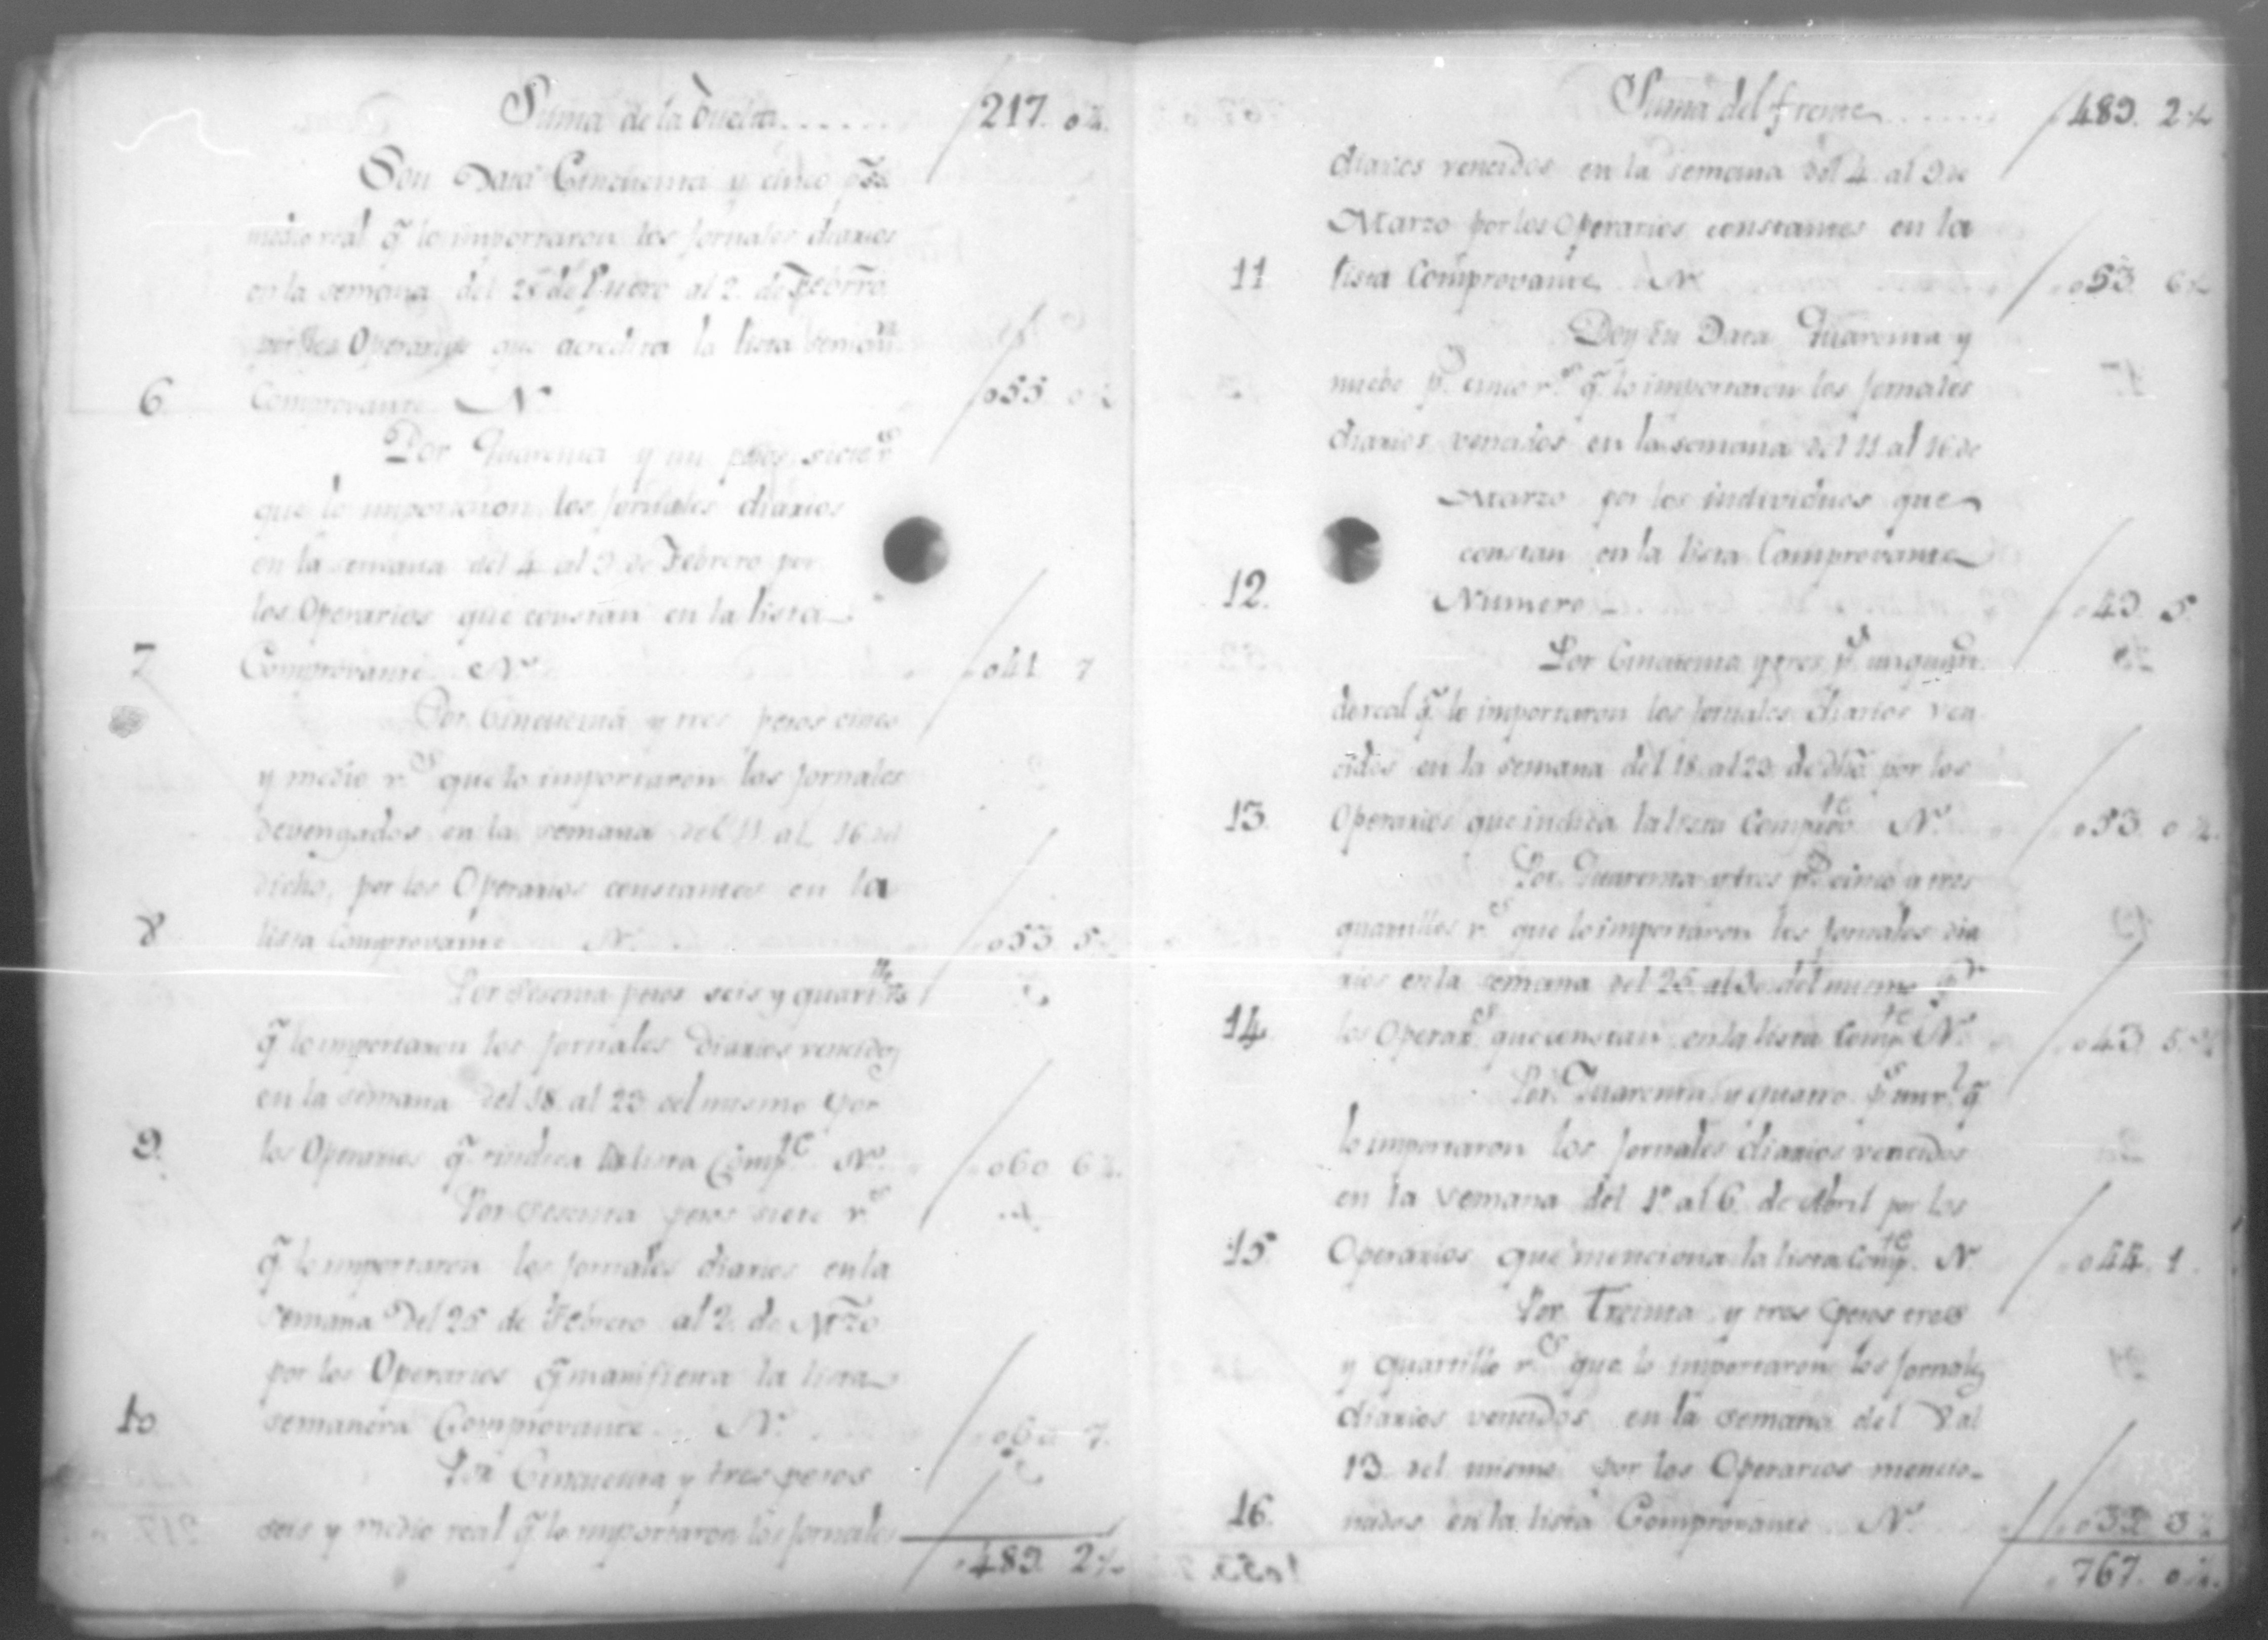 Suma de la buelta...... 217. 0½.
Son Data Cincuenta y cinco p.s
medio real q̃ lo importaron los jornales diarios
en la semana del 28 de Enero al 2. de Febrro
por los Operarios que acredita la lista seman.ra
6. Comprovante N.º 055. 0½
Por Quarenta y un pesos siete r.s
que lo importaron los jornales diarios
en la semana del 4 al 9. de Febrero por
los Operarios que constan en la lista
7 Comprovante N.º 041. 7
Por Cincuenta y tres pesos cinco
y medio r.s que lo importaron los jornales
devengados en la semana del 11 al 16 del
dicho, por los Operarios constantes en la
8 lista Comprovante N.º 053. 5½
Por Sesenta pesos seis y quartillo r.s
q̃ lo importaron los jornales Diarios vencidos
en la semana del 18. al 23 del mismo por
9. los Operarios q̃ indica la lista Comp.te N.º 060 6¼.
Por Sesenta pesos siete r.s
q̃ lo importaron los jornales diarios en la
semana Del 25 de Febrero al 2. de Mrzo
por los Operarios q̃ manifiesta la lista
10. semanera Comprovante N.º 060 7.
Por Cincuenta y tres pesos
seis y medio real q̃ lo importaron los jornales
489. 2¼
Suma del frente...... 489. 2¼
diarios vencidos en la semana del 4. al 9. de
Marzo por los Operarios constantes en la
11 lista Comprovante N.º 053. 6½
Doy en Data Quarenta y
nuebe p.s cinco r.s q̃ lo importaron los jornales
diarios vencidos en la semana del 11 al 16 de
Marzo por los individuos que
constan en la lista Comprovante
12. Numero 049. 5.
Por Cincuenta y tres p.s un quar.
de real q̃ lo importaron los jornales diarios ven
cidos en la semana del 18. al 23. de dho. por los
13. Operarios que indica la lista Comprte. N.º 053. 0¼.
Por Quarenta y tres p.s cinco y tres
quartillos r.s que lo importaron los jornales dia
rios en la semana del 25. al 30. del mismo p.r
14. los Operar.os que constan en la lista Comp.te N.º 043. 5¾
Por Quarenta y quatro p.s un r.l q̃
lo importaron los jornales diarios vencidos
en la semana del 1º al 6. de Abril por los
15. Operarios que menciona la lista Comp.te N. 044. 1.
Por Treinta y tres pesos tres
y quartillo r.s que lo importaron los jornales
diarios vencidos en la semana del 8. al
13. del mismo por los Operarios mencio-
16. nados en la lista Comprovante N.º 033 3¼
767. 0¼.